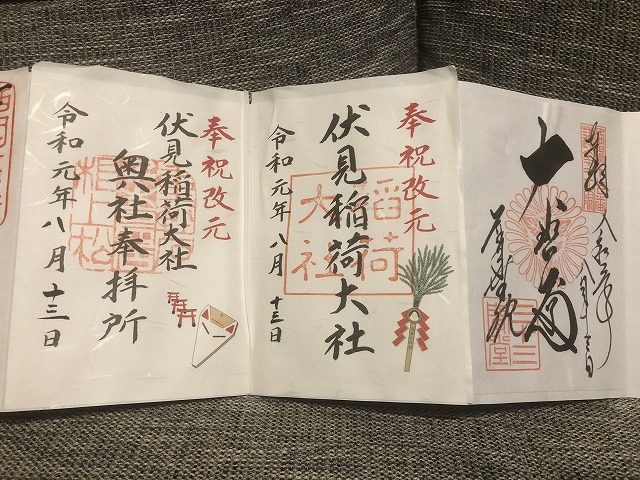 奉拝
令和元年八月十三日
大悲閣
奉祝改元
伏見稲荷大社
稲荷大社
令和元年八月十三日
奉祝改元
伏見稲荷大社
奥社奉拝所
令和元年八月十三日